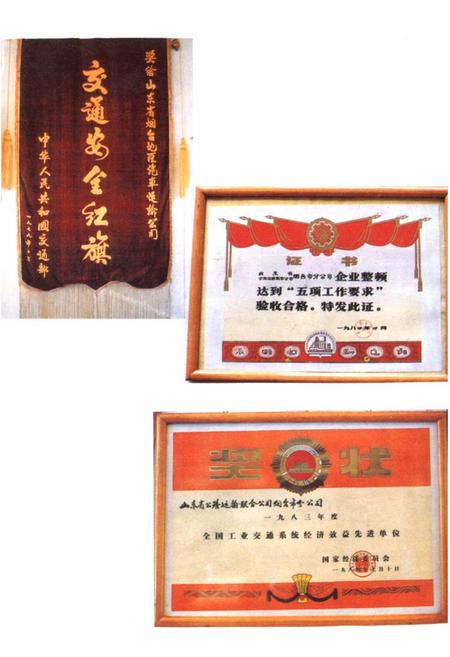 奖给山东省烟台地区汽车运输公司
交通安全红旗
中华人民共和国交通部
一九七九年十月
证书
烟台市分公司 企业整顿
达到“五项工作要求”
验收合格。特发此证。
奖状
山东省公路运输联合公司烟台市分公司
一九八三年度
全国工业交通系统经济效益先进单位
国家经济委员会